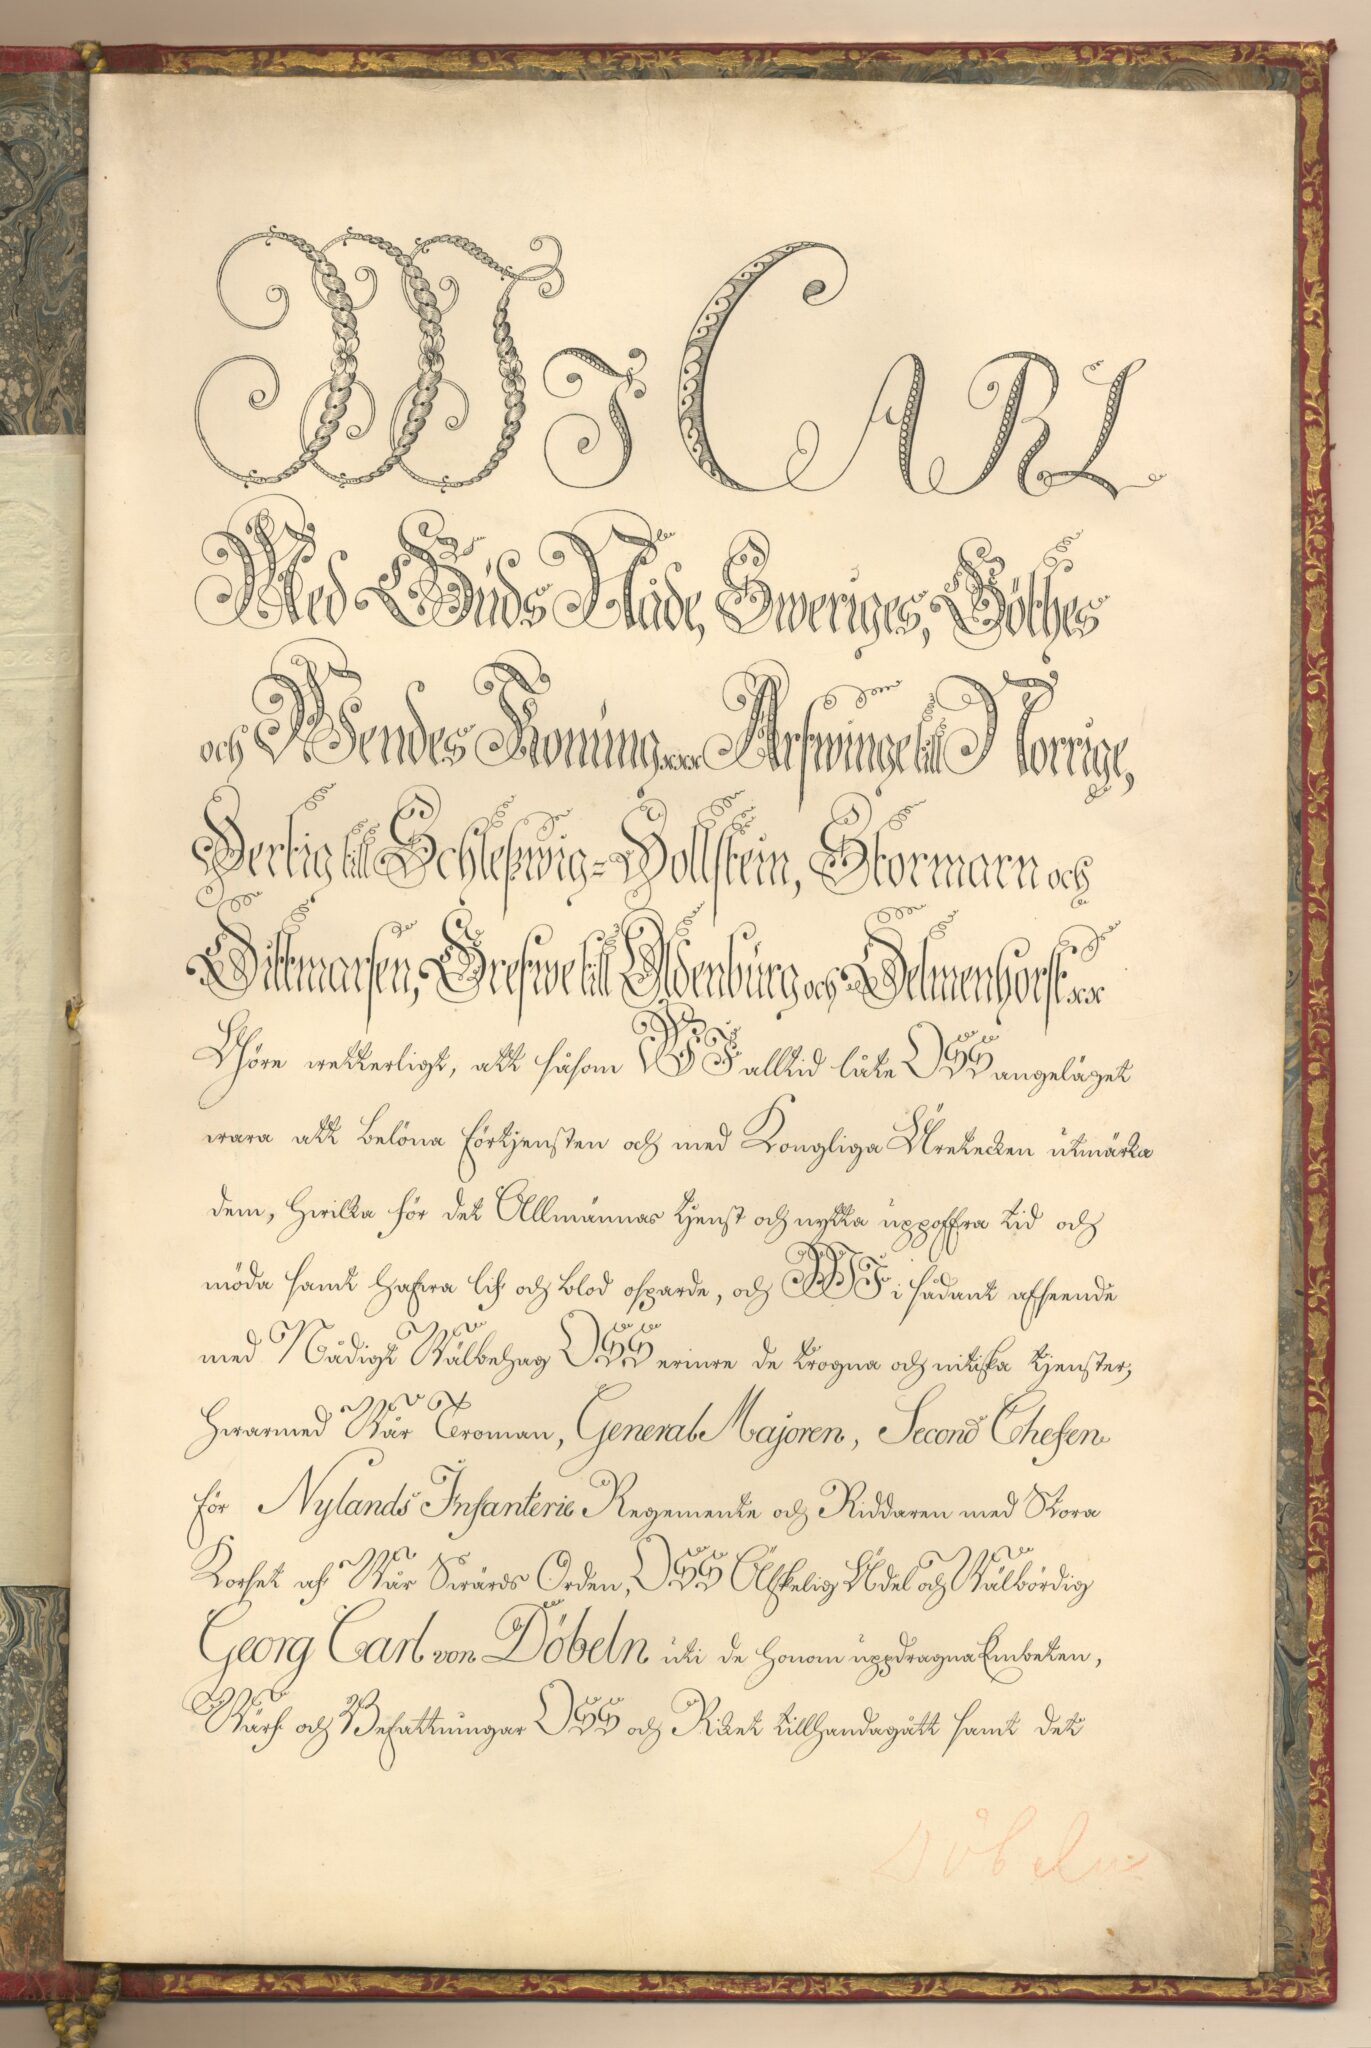 WJ CARL
Med Guds Nåde, Sweriges, Göthes
och Wendes Konung Arfwinge till Norrige,
Hertig till Schleßwig=Hollstein, Stormarn och
Dittmarsen, Grefwe till Oldenburg och Delmenhorst
Giöre wetterligt, att såsom WJ alltid låte OSS angeläget
wara att belöna förtjensten och med Kongliga Äretecken utmärka
dem, hwilka för det Allmännas tjenst och nytta uppoffra tid och
möda samt hafwa lif och blod ospardt, och WJ i sådant afseende
med Nådigt Wälbehag OSS erinre de trogna och nitiska tjenster,
hwarmed Wår Troman, General Majoren, Second Chefen
för Nylands Infanterie Regemente och Riddaren med Stora
Korset af Wår Swärds Orden, OSS Älskelig Ädel och Wälbördig
Georg Carl von Döbeln uti de honom uppdragna Embeten,
Wärf och Befattningar OSS och Riket tillhandagått samt det
Döbeln